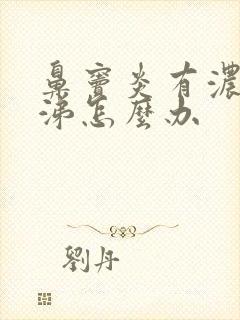 鼻竇炎有濃
涕怎麼办
劉丹